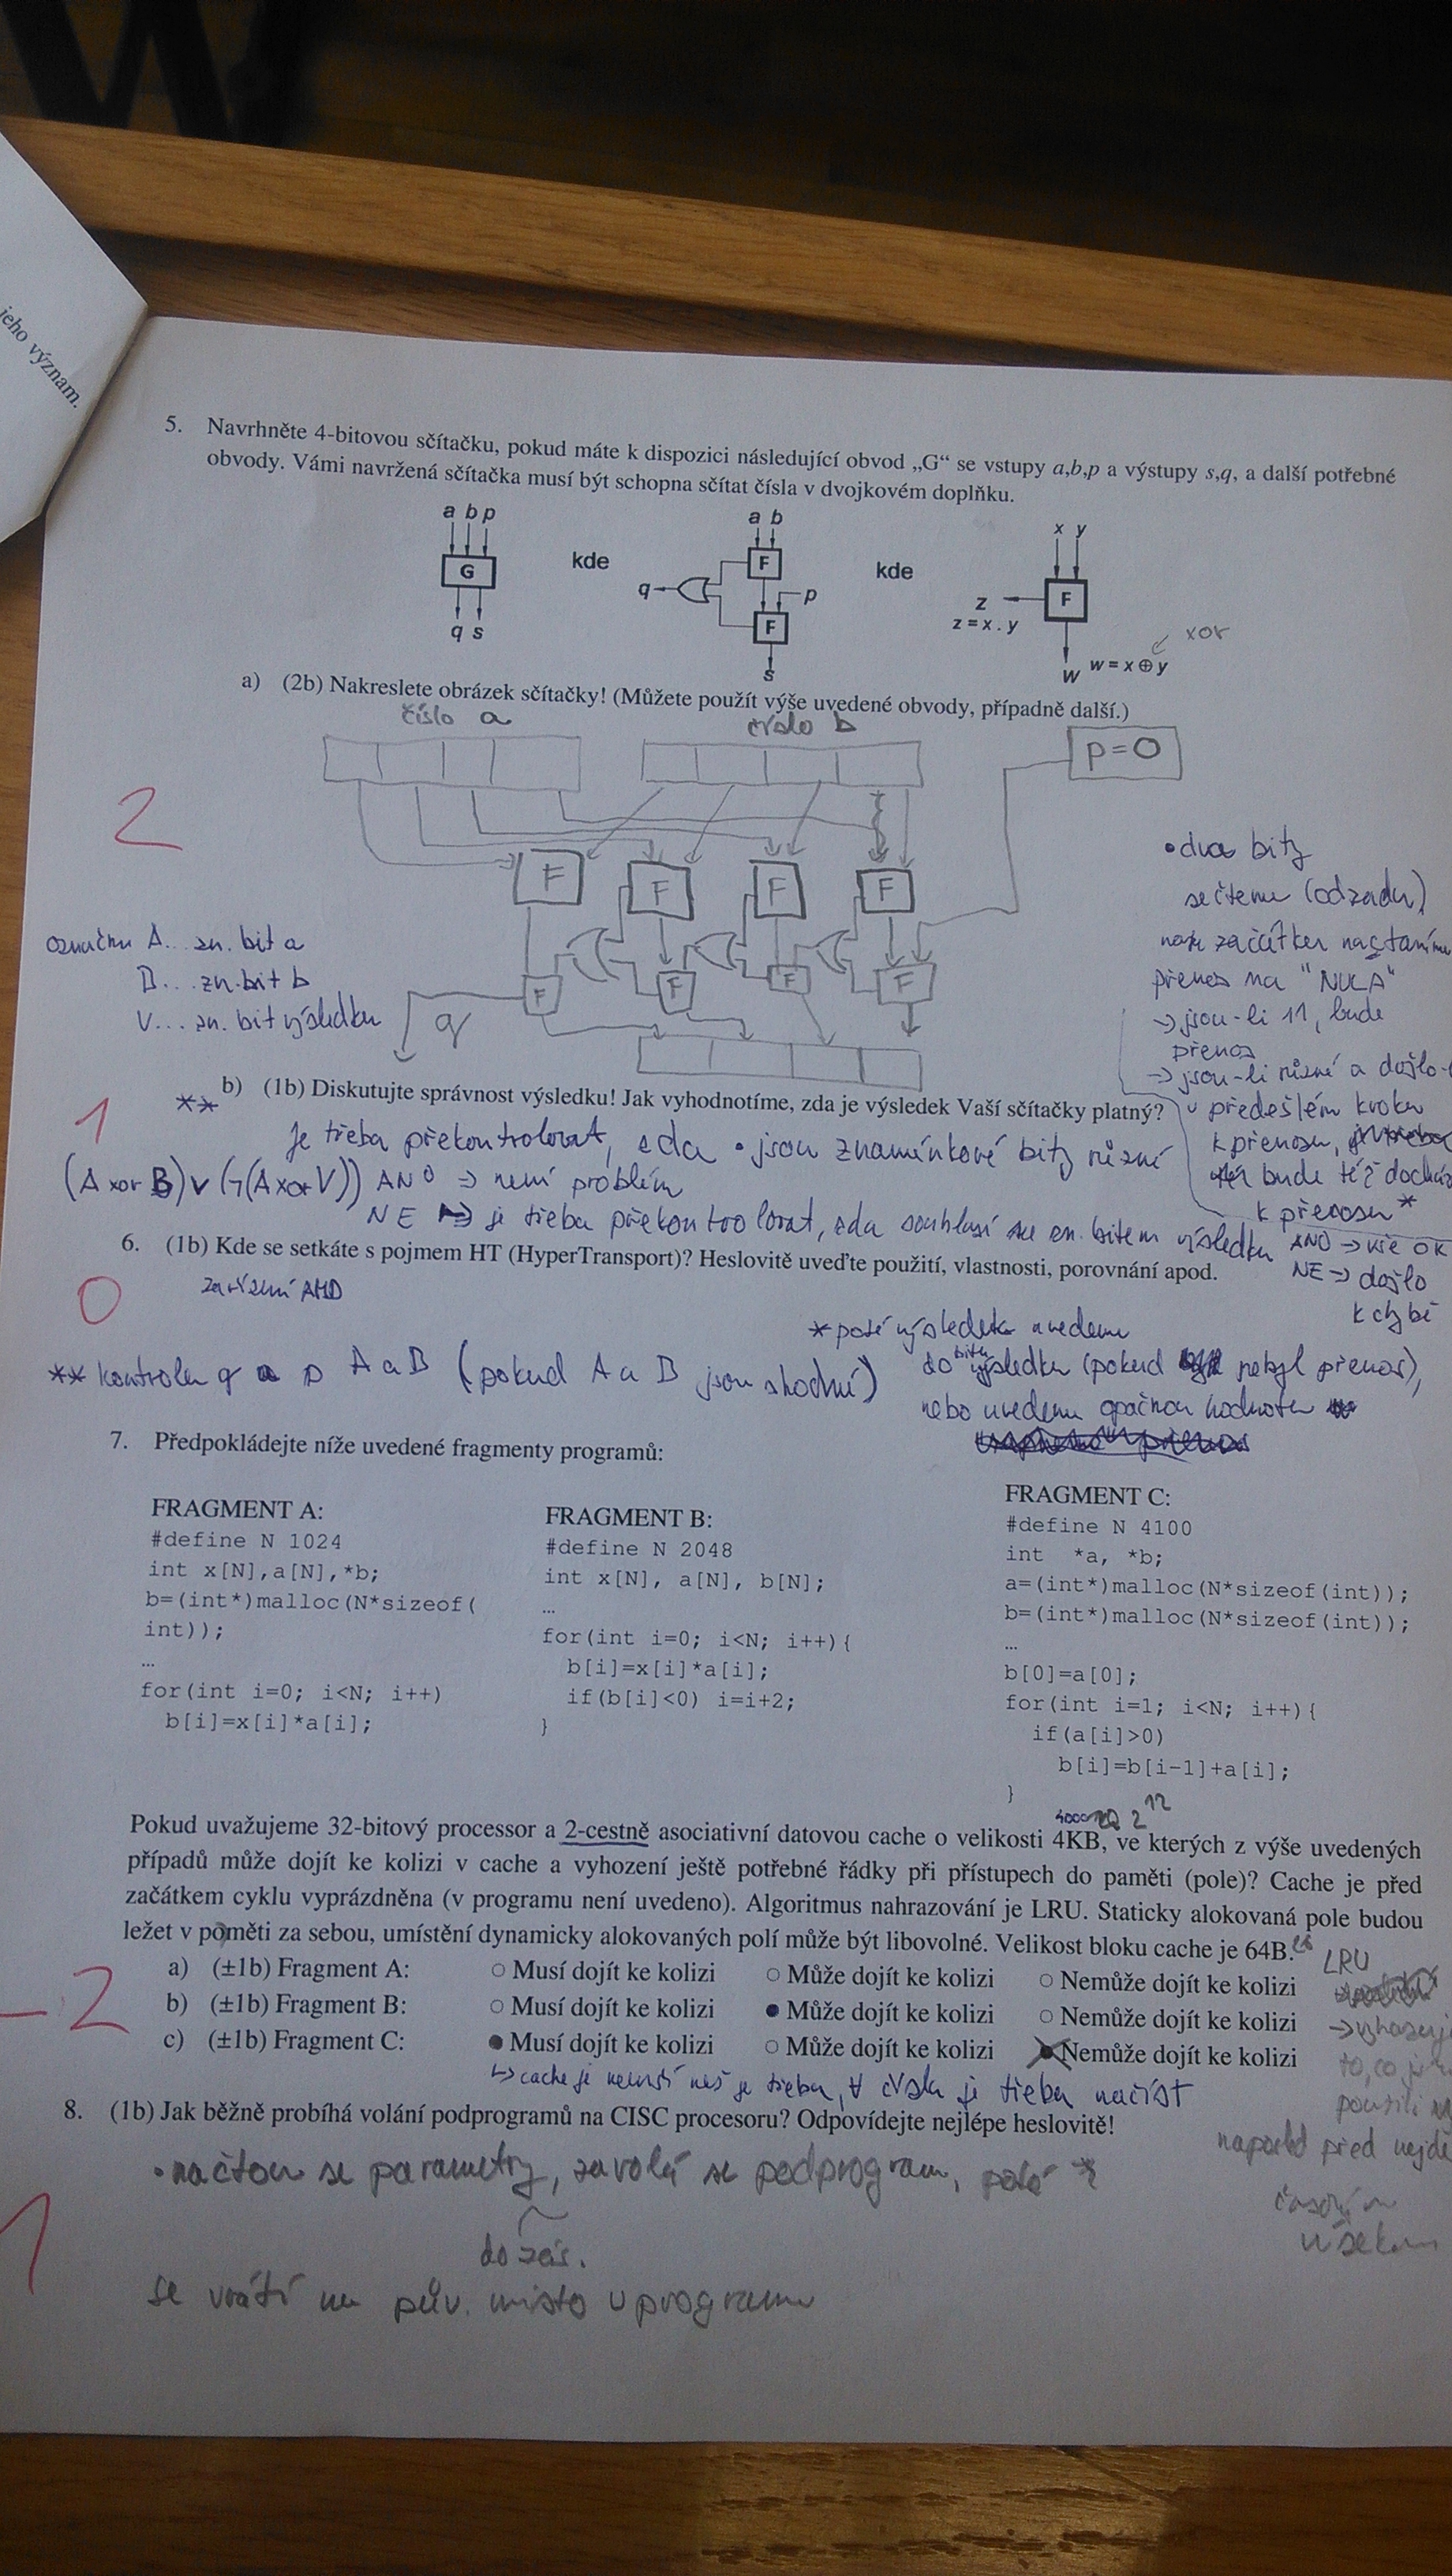 jeho význam.
5. Navrhněte 4-bitovou sčítačku, pokud máte k dispozici následující obvod „G“ se vstupy a,b,p a výstupy s,q, a další potřebné
obvody. Vámi navržená sčítačka musí být schopna sčítat čísla v dvojkovém doplňku.
a b p
G
q s
kde
a b
F
q
p
F
s
kde
x y
F
z
z = x . y
w
w = x ⊕ y
xor
a) (2b) Nakreslete obrázek sčítačky! (Můžete použít výše uvedené obvody, případně další.)
číslo a
číslo b
p=0
2
F F F F
F F F F
q
označím A... zn. bit a
B... zn. bit b
V... zn. bit výsledku
• dva bity
sečteme (odzadu)
začátku nastavíme
přenos na "NULA"
→ jsou-li 11, bude
přenos
→ jsou-li různé a došlo-
v předešlém kroku
k přenosu,
bude též
k přenosu *
b) (1b) Diskutujte správnost výsledku! Jak vyhodnotíme, zda je výsledek Vaší sčítačky platný?
**
1
Je třeba překontrolovat, zda • jsou znaménkové bity různé
(A xor B) ∨ (¬(A xor V)) ANO ⇒ není problém
NE ⇒ je třeba překontrolovat, zda souhlasí se zn. bitem výsledku ANO → vše OK
NE → došlo
k chybě
6. (1b) Kde se setkáte s pojmem HT (HyperTransport)? Heslovitě uveďte použití, vlastnosti, porovnání apod.
0
zařízení AMD
* poté výsledek uvedeme
do bitu výsledku (pokud nebyl přenos),
nebo uvedeme opačnou hodnotu
** kontrola q a p A a B (pokud A a B jsou shodné)
7. Předpokládejte níže uvedené fragmenty programů:
FRAGMENT A:
#define N 1024
int x[N],a[N],*b;
b=(int*)malloc(N*sizeof(
int));
…
for(int i=0; i<N; i++)
b[i]=x[i]*a[i];
FRAGMENT B:
#define N 2048
int x[N], a[N], b[N];
…
for(int i=0; i<N; i++){
b[i]=x[i]*a[i];
if(b[i]<0) i=i+2;
}
FRAGMENT C:
#define N 4100
int *a, *b;
a=(int*)malloc(N*sizeof(int));
b=(int*)malloc(N*sizeof(int));
…
b[0]=a[0];
for(int i=1; i<N; i++){
if(a[i]>0)
b[i]=b[i-1]+a[i];
}
2^12
Pokud uvažujeme 32-bitový processor a 2-cestně asociativní datovou cache o velikosti 4KB, ve kterých z výše uvedených
případů může dojít ke kolizi v cache a vyhození ještě potřebné řádky při přístupech do paměti (pole)? Cache je před
začátkem cyklu vyprázdněna (v programu není uvedeno). Algoritmus nahrazování je LRU. Staticky alokovaná pole budou
ležet v poměti za sebou, umístění dynamicky alokovaných polí může být libovolné. Velikost bloku cache je 64B.
a) (±1b) Fragment A: ○ Musí dojít ke kolizi ○ Může dojít ke kolizi ○ Nemůže dojít ke kolizi
b) (±1b) Fragment B: ○ Musí dojít ke kolizi ● Může dojít ke kolizi ○ Nemůže dojít ke kolizi
c) (±1b) Fragment C: ● Musí dojít ke kolizi ○ Může dojít ke kolizi ● Nemůže dojít ke kolizi
-2
LRU
→ vyhazuje
to, co je
použili
naposled před nejde
časovým
úsekem
↳ cache je menší než je třeba, ∀ čísla je třeba načíst
8. (1b) Jak běžně probíhá volání podprogramů na CISC procesoru? Odpovídejte nejlépe heslovitě!
• načtou se parametry, zavolá se podprogram, poté
do zás.
se vrátí na pův. místo v programu
1